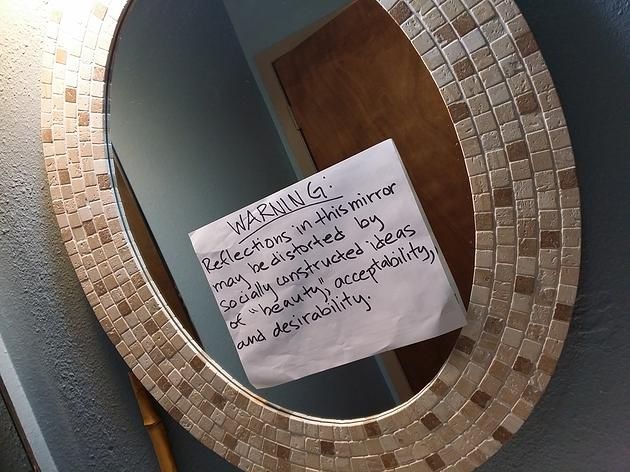 WARNING:
Reflections in this mirror
may be distorted by
socially constructed ideas
of "beauty", acceptability,
and desirability.